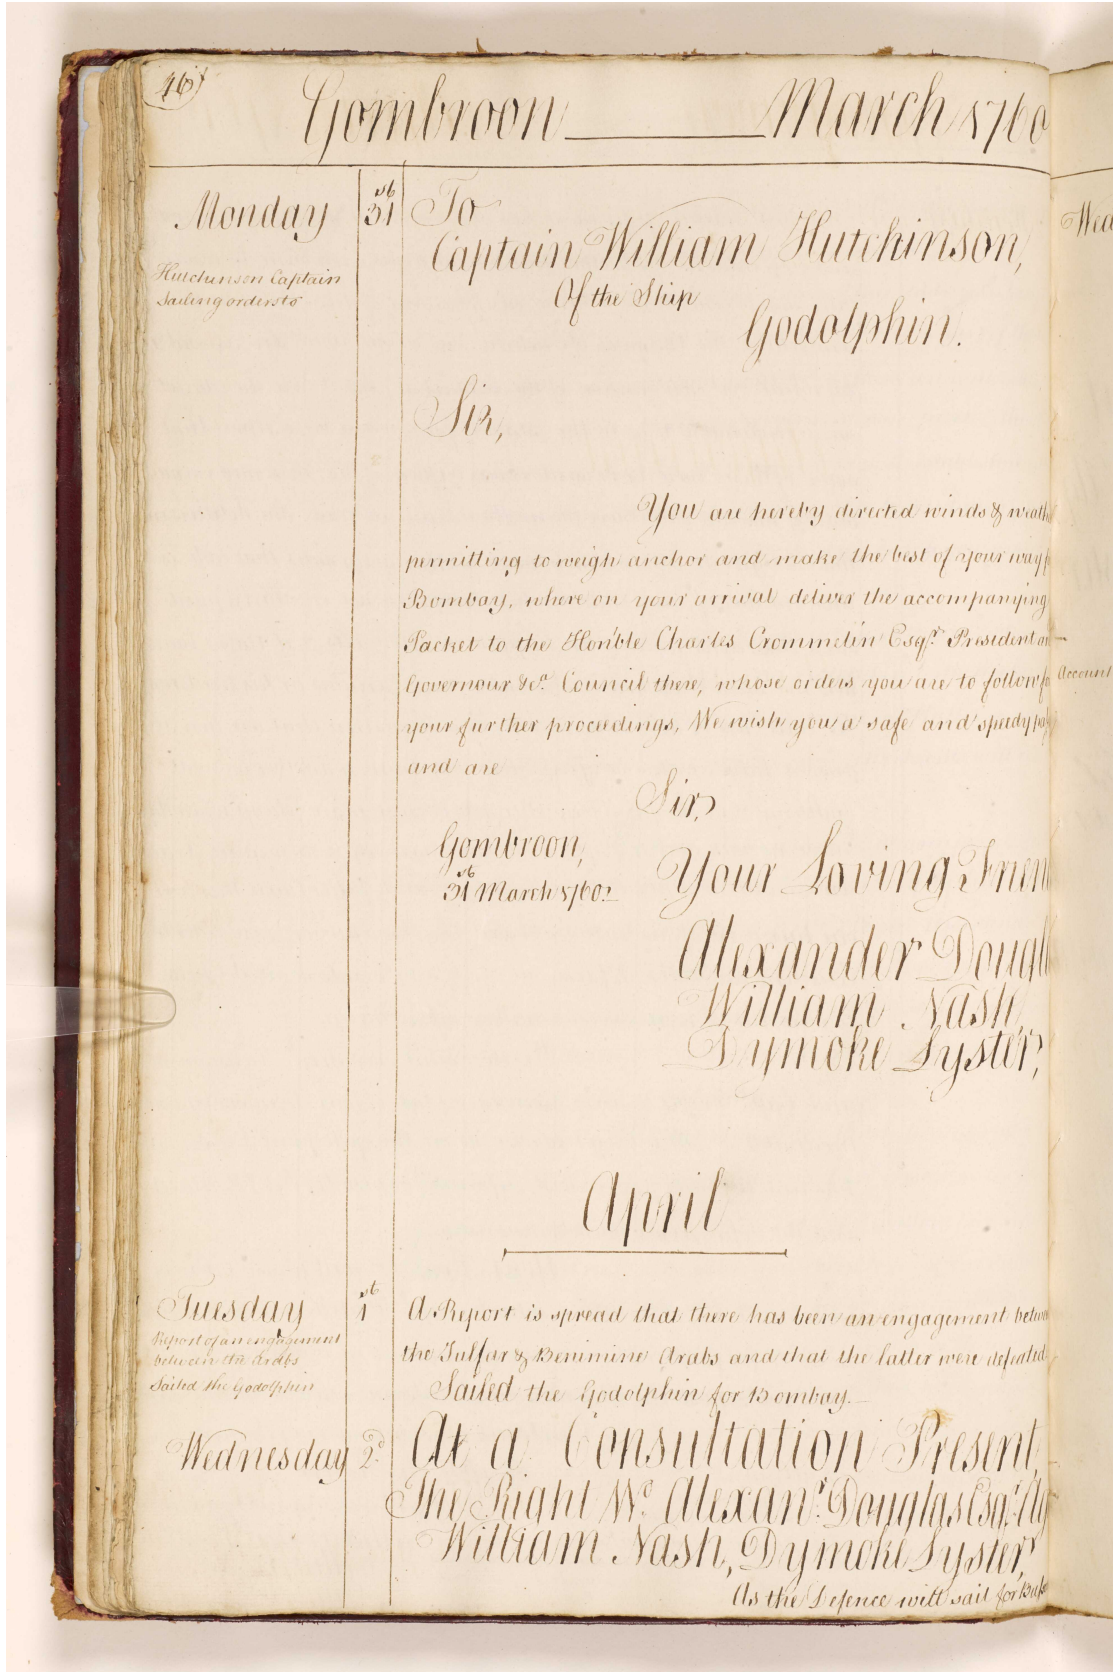 46
Gombroon March 1760
Monday 31st To
Captain William Hutchinson,
Hutchinson Captain
Sailing orders to
Of the Ship
Godolphin.
Sir,
You are hereby directed winds & weath
permitting to weigh anchor and make the best of your way f
Bombay, where on your arrival deliver the accompanying
Packet to the Hon'ble Charles Crommelin Esqr. President an
Governour &ca. Council there, whose orders you are to follow fo
your further proceedings, We wish you a safe and speedy pa
and are
Sir,
Gombroon,
31st March 1760.
Your Loving Frien
Alexander Dougl
William Nash,
Dymoke Lyster,
April
Tuesday 1st A Report is spread that there has been an engagement betwe
Report of an engagement
between the Arabs
the Julfar & Benimine Arabs and that the latter were defeated
Sailed the Godolphin
Sailed the Godolphin for Bombay.
Wednesday 2d. At a Consultation Present,
The Right Wo. Alexanr. Douglas Esqr. Ag
William Nash, Dymoke Lyster,
As the Defence will sail for
Wed
Account